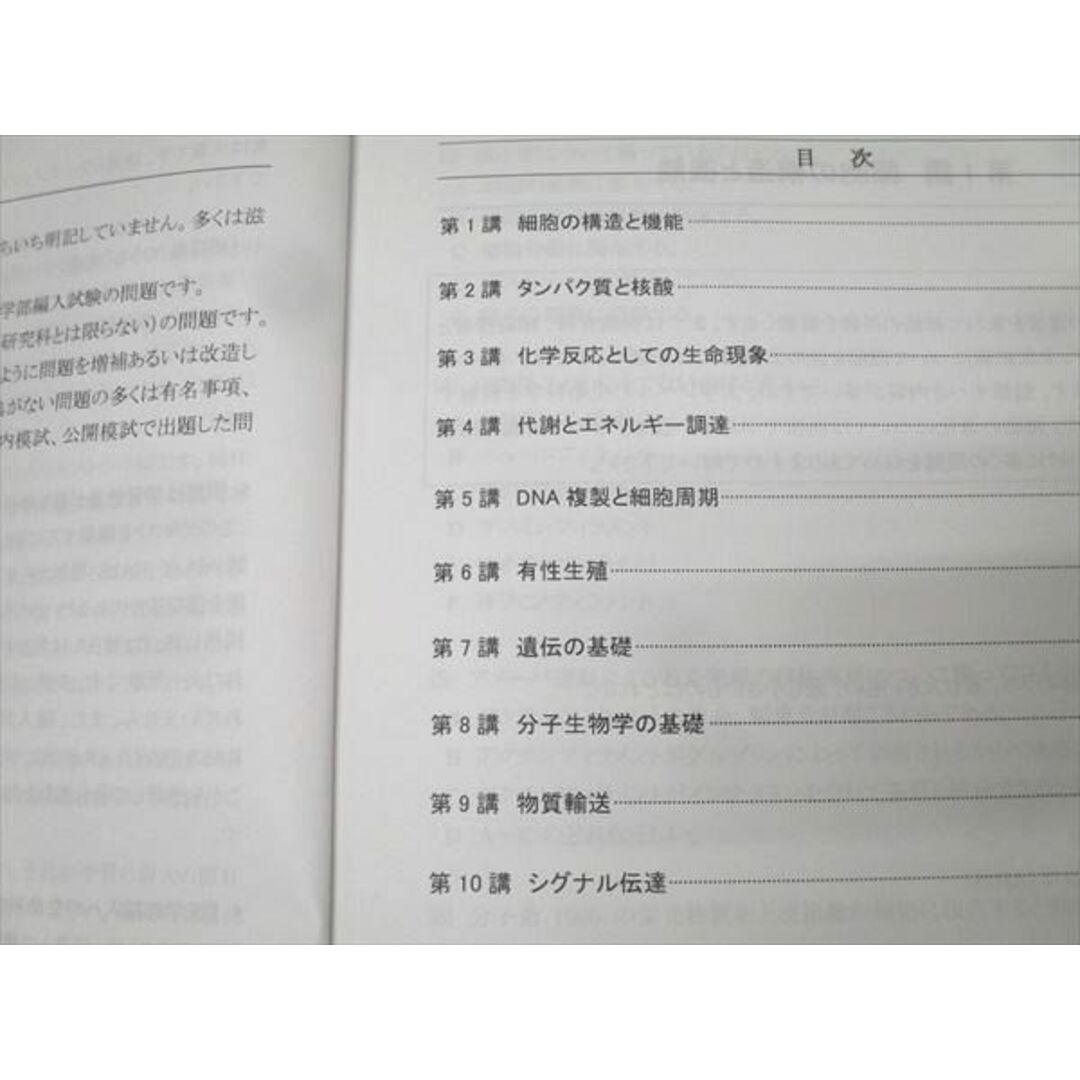 ちいち明記していません。多くは滋
学部編入試験の問題です。
研究科とは限らない)の問題です。
ように問題を増補あるいは改造し
がない問題の多くは有名事項、
内模試、公開模試で出題した問
目 次
第1講 細胞の構造と機能
第2講 タンパク質と核酸
第3講 化学反応としての生命現象
第4講 代謝とエネルギー調達
第5講 DNA 複製と細胞周期
第6講 有性生殖
第7講 遺伝の基礎
第8講 分子生物学の基礎
第9講 物質輸送
第10講 シグナル伝達